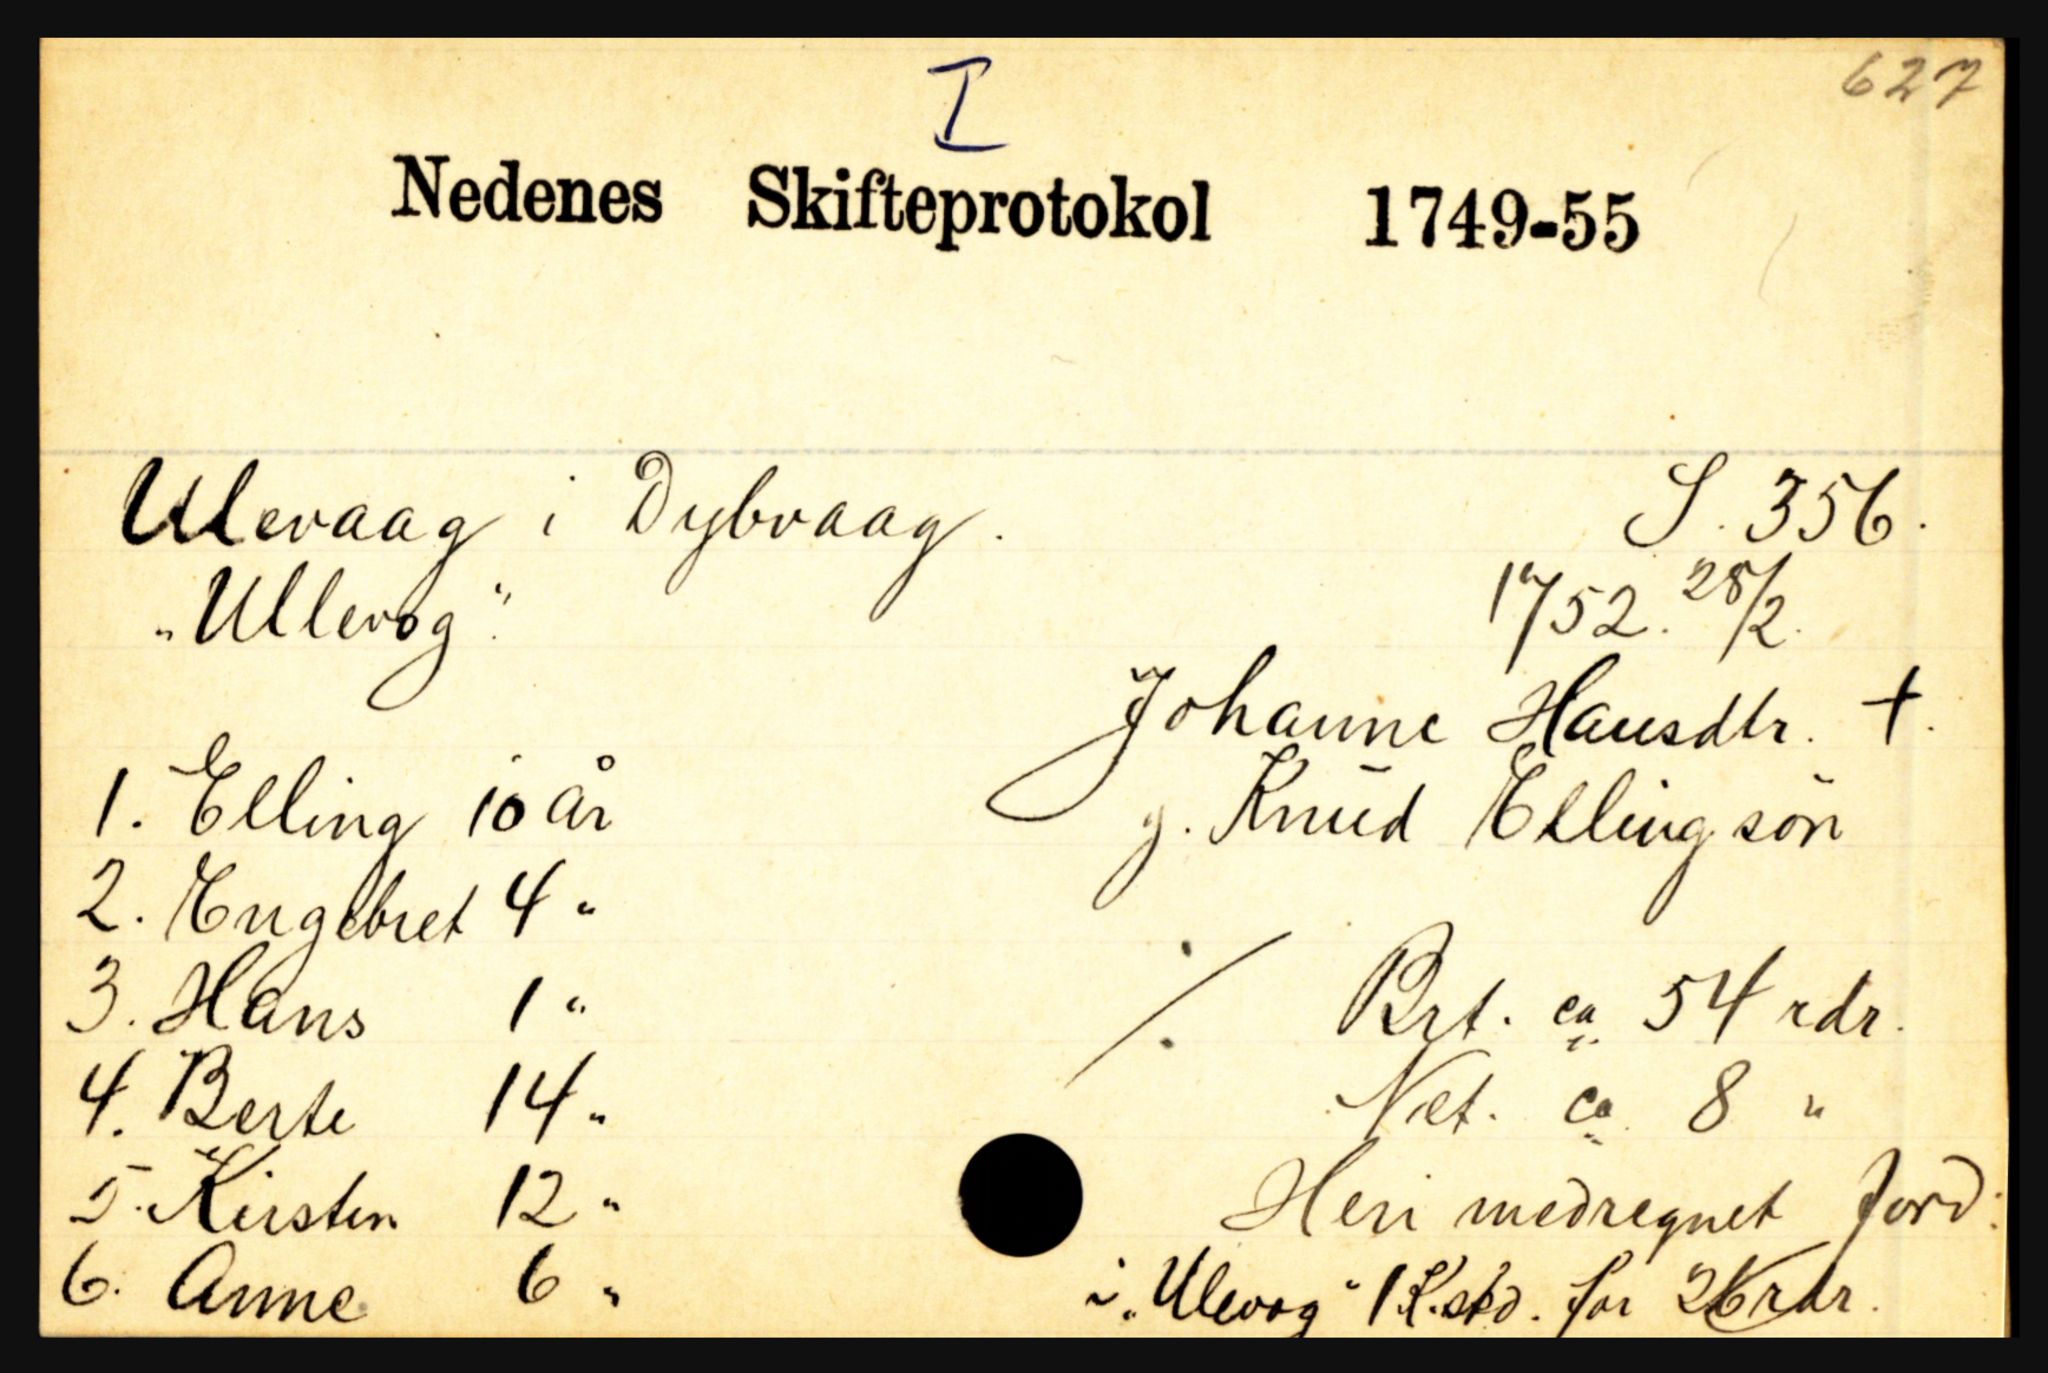 627
I
Nedenes Skifteprotokol 1749-55
Ulevaag i Dybvaag. S. 356.
„Ullevog“. 1752. 28/2.
Johanne Hansdtr. †.
1. Elling 10 år g. Knud Ellingsön
2. Engebret 4 "
3. Hans 1 " ·/· Brt. ca 54 rdr.
4. Berte 14 " Net. ca 8 "
5. Kirsten 12 " Heri medregnet Jord:
6. Anne 6 " i „Ulevog“ 1 K.skd. for 26 rdr.